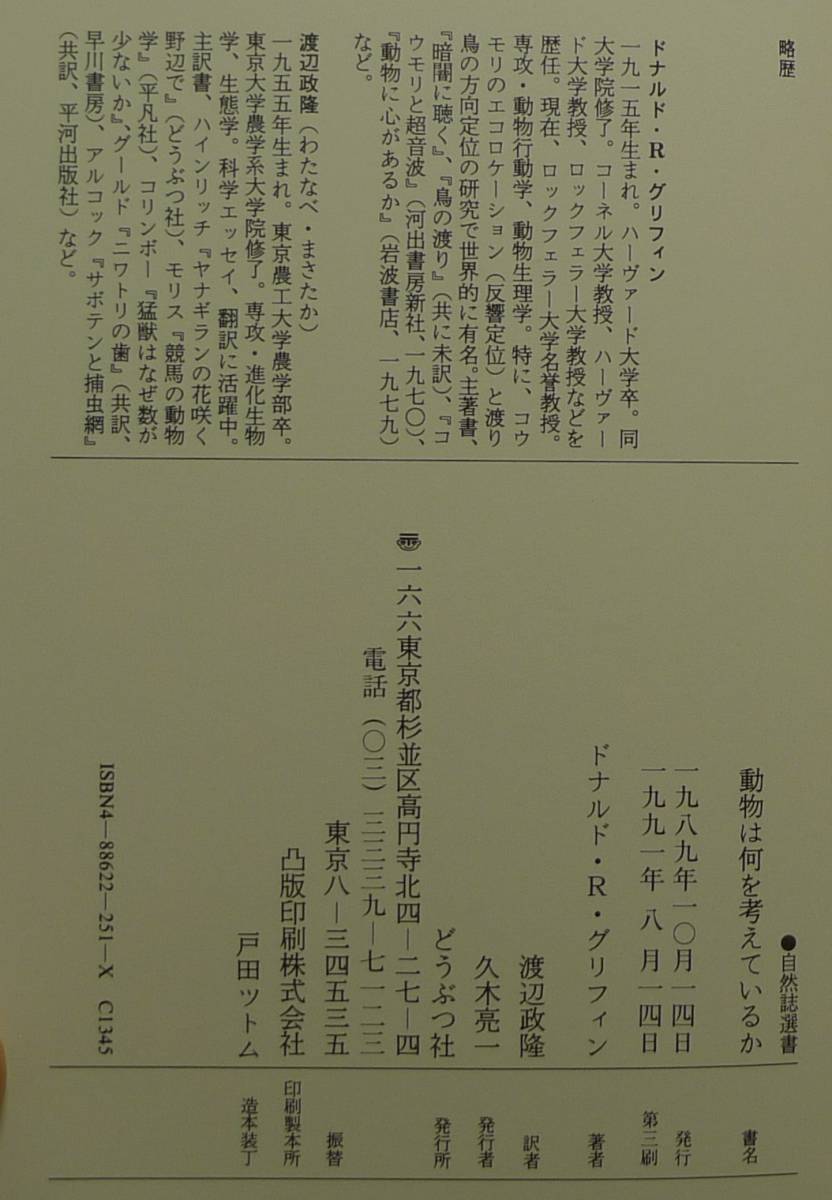 略歴
ドナルド・R・グリフィン
一九一五年生まれ。ハーヴァード大学卒。同
大学院修了。コーネル大学教授、ハーヴァー
ド大学教授、ロックフェラー大学教授などを
歴任。現在、ロックフェラー大学名誉教授。
専攻・動物行動学、動物生理学。特に、コウ
モリのエコロケーション（反響定位）と渡り
鳥の方向定位の研究で世界的に有名。主著書、
『暗闇に聴く』、『鳥の渡り』（共に未訳）、『コ
ウモリと超音波』（河出書房新社、一九七〇）、
『動物に心があるか』（岩波書店、一九七九）
など。
渡辺政隆（わたなべ・まさたか）
一九五五年生まれ。東京農工大学農学部卒。
東京大学農学系大学院修了。専攻・進化生物
学、生態学。科学エッセイ、翻訳に活躍中。
主訳書、ハインリッチ『ヤナギランの花咲く
野辺で』（どうぶつ社）、モリス『競馬の動物
学』（平凡社）、コリンボー『猛獣はなぜ数が
少ないか』、グールド『ニワトリの歯』（共訳、
早川書房）、アルコック『サボテンと捕虫網』
（共訳、平河出版社）など。
●自然誌選書
動物は何を考えているか 書名
一九八九年一〇月一四日 発行
一九九一年 八 月一四日 第三刷
ドナルド・R・グリフィン 著者
渡辺政隆 訳者
久木亮一 発行者
どうぶつ社 発行所
〒一六六東京都杉並区高円寺北四―二七―四
電話（〇三）三三三九―七一二三
東京八―三四五三五 振替
凸版印刷株式会社 印刷製本所
戸田ツトム 造本装丁
ISBN4―88622―251―X C1345